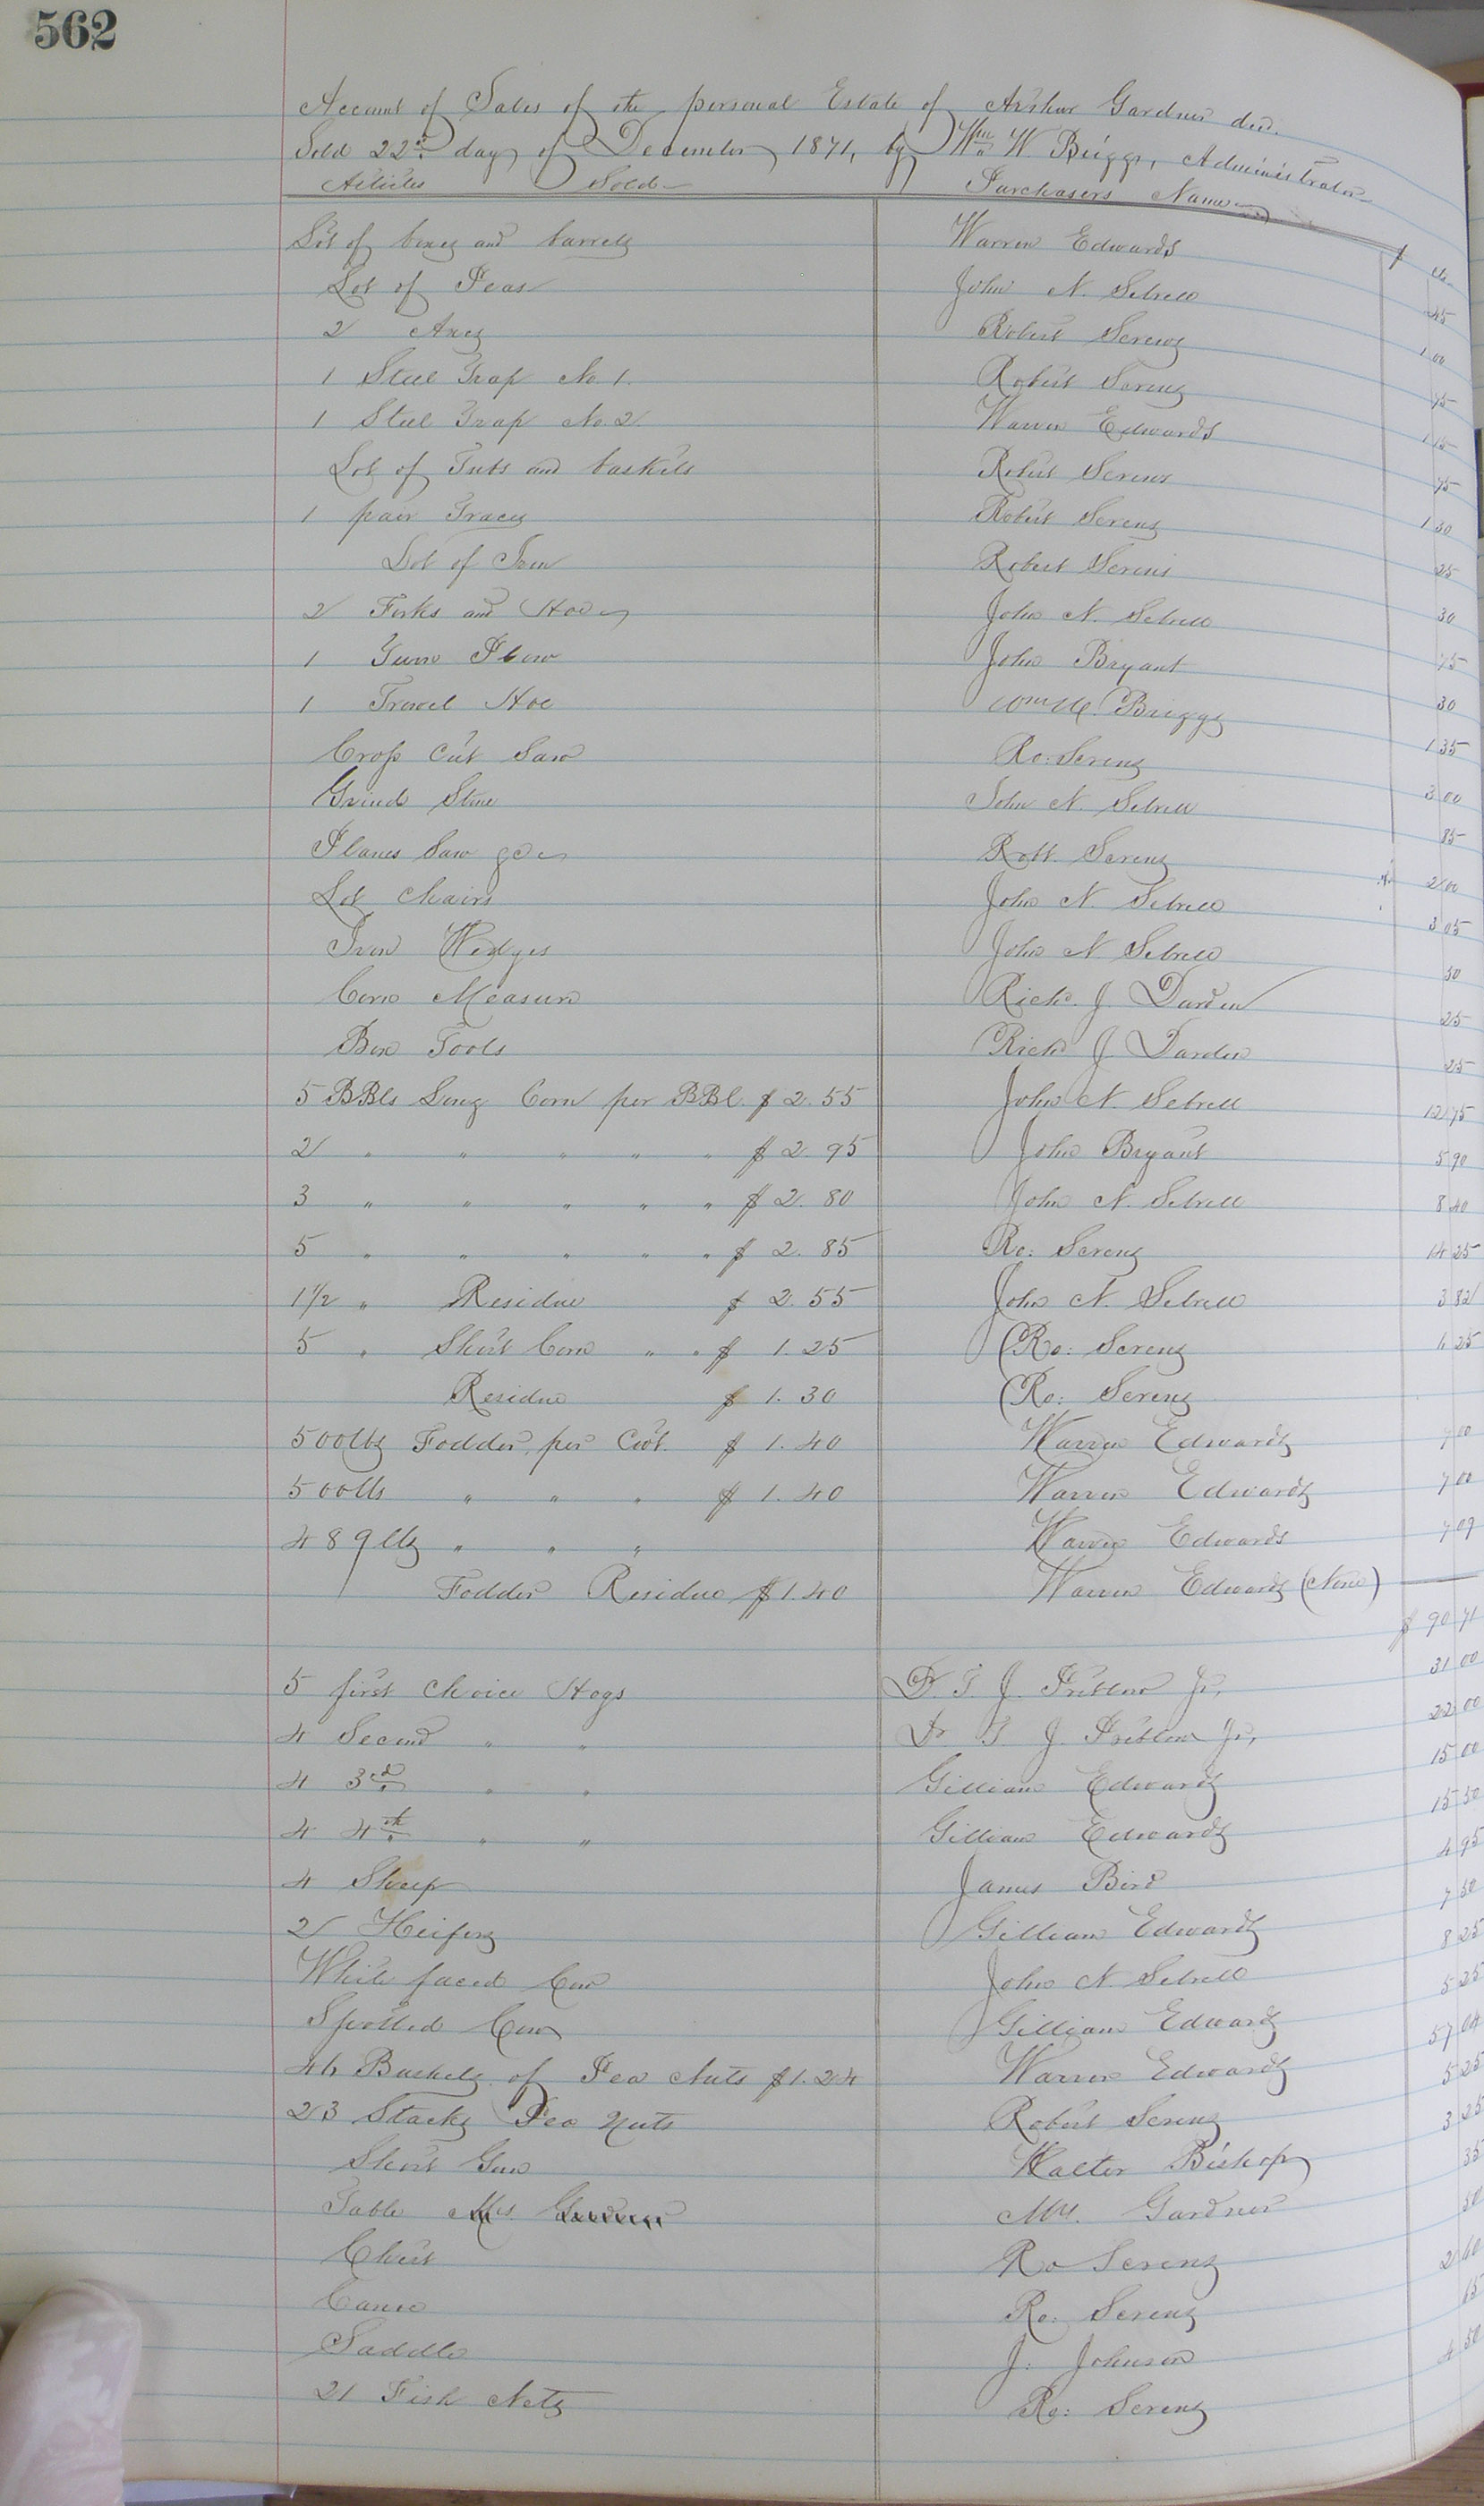 562
Account of Sales of the personal Estate of Arthur Gardner decd.
Sold 22nd day of December 1871, by Wm W. Briggs, Administrator
Articles Sold Purchasers Name
$ cts
Lot of boxes and barrels Warren Edwards 45
Lot of Peas John N. Sebrell 1 00
2 Axes Robert Screws 75
1 Steel Trap No. 1. Robert Screws 1 15
1 Steel Trap No. 2 Warren Edwards 75
Lot of Tubs and baskets Robert Screws 1 30
1 pair Traces Robert Screws 25
Lot of Iron Robert Screws 30
2 Forks and Hoe John N. Sebrell 75
1 Turn Plow John Bryant 30
1 Trowel Hoe Wm W. Briggs 1 35
Cross Cut Saw Ro: Screws 3 00
Grind Stone John N. Sebrell 85
Planes Saw &c Robt. Screws 2 00
Lot Chairs John N. Sebrell 3 05
Iron Wedges John N Sebrell 30
Corn Measure Richd. J. Darden 25
Box Tools Richd J. Darden 25
5 BBls Long Corn per BBl. $ 2.55 John N. Sebrell 12 75
2 " " " " " $ 2.95 John Bryant 5 90
3 " " " " " $ 2.80 John N. Sebrell 8 40
5 " " " " " $ 2.85 Ro: Screws 14 25
1 1/2 " Residue $ 2.55 John N. Sebrell 3 82
5 " Short Corn " " $ 1.25 (Ro: Screws 6 25
Residue $ 1.30 (Ro: Screws
500lbs Fodder, per Cwt. $ 1.40 Warren Edwards 7 00
500lbs " " " $ 1.40 Warren Edwards 7 00
489 lbs " " " Warren Edwards 7 09
Fodder Residue $1.40 Warren Edwards (None)
$ 90 71
5 first Choice Hogs Dr. T. J. Pretlow Jr, 31 00
4 Second " " Dr T J. Pretlow Jr, 22 00
4 3rd " " Gilliam Edwards 15 00
4 4th " " Gilliam Edwards 15 50
4 Sheep James Bird 4 95
2 Heifers Gilliam Edwards 7 50
White faced Cow John N Sebrell 8 25
Spotted Cow Gilliam Edwards 5 25
46 Bushels of Pea Nuts $1.24 Warren Edwards 57 04
23 Stacks Pea Nuts Robert Screws 5 25
Short Gun Walter Bishop 3 25
Table Mrs. Gardner Mrs. Gardner 35
Chest Ro Screws 50
Canoe Ro: Screws 2 60
Saddle J. Johnson 15
21 Fish Nets Ro: Screws 4 50